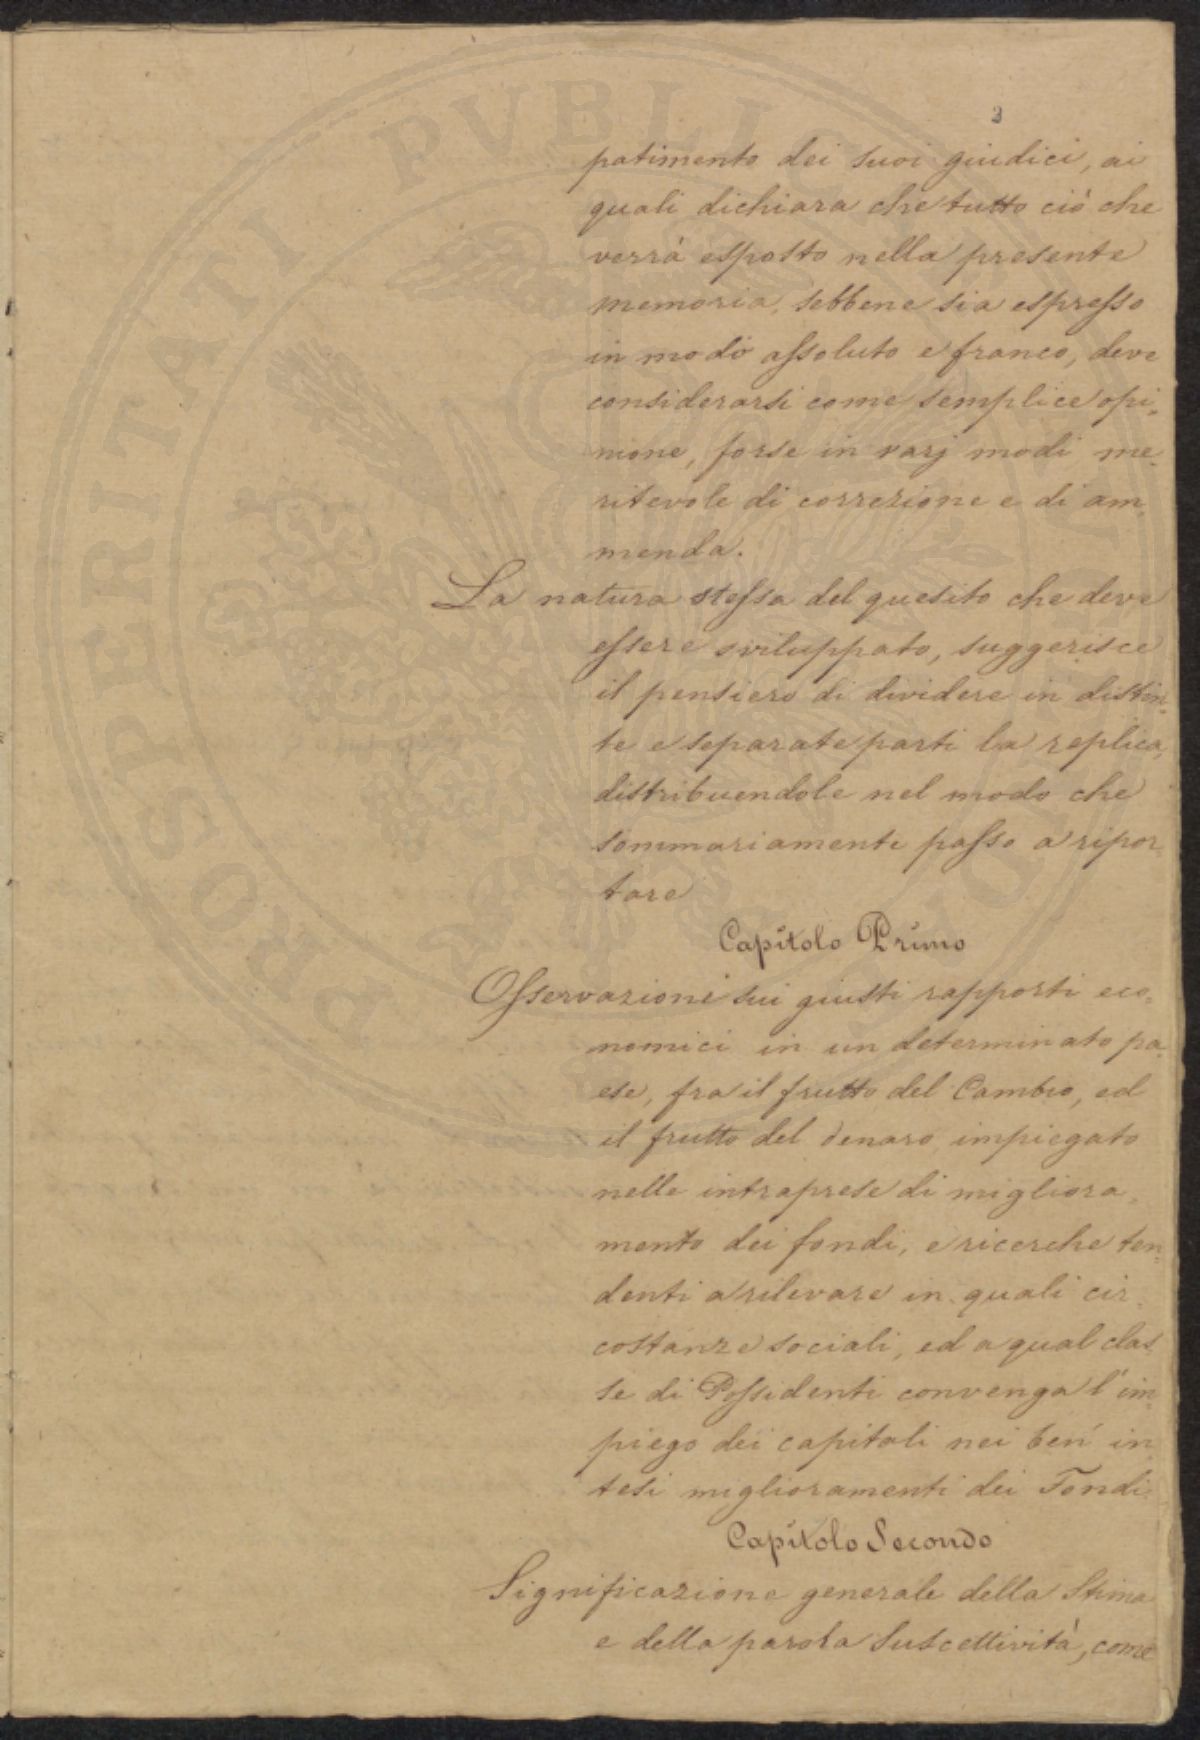 3
patimento dei suoi giudici, ai
quali dichiara che tutto ciò che
verrà esposto nella presente
memoria, sebbene sia espresso
in modo assoluto e franco, deve
considerarsi come semplice opi-
nione, forse in varj modi me-
ritevole di correzione e di am-
menda.
La natura stessa del quesito che deve
essere sviluppato, suggerisce
il pensiero di dividere in distin-
te e separate parti la replica,
distribuendole nel modo che
sommariamente passo a ripor-
tare
Capitolo Primo
Osservazioni sui giusti rapporti eco-
nomici in un determinato pa-
ese, fra il frutto del Cambio, ed
il frutto del denaro impiegato
nelle intraprese di migliora-
mento dei fondi, e ricerche ten-
denti a rilevare in quali cir-
costanze sociali, ed a qual clas-
se di Possidenti convenga l'im-
piego dei capitali nei ben in-
tesi miglioramenti dei Fondi.
Capitolo Secondo
Significazione generale della Stima
e della parola Suscettività, come
PROSPERITATI PVBLICAE